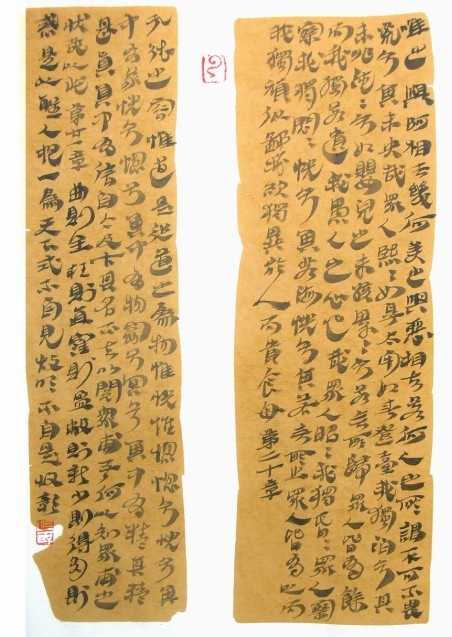 唯之與阿相去幾何美之與惡相去若何人之所謂不可不畏
荒兮其未央哉眾人熙々如享太牢如春登臺我獨泊兮其
未兆沌々兮如嬰兒之未孩儽々兮若无所歸眾人皆有餘
而我獨若遺我愚人之心也哉眾人昭々我獨昏々眾人察
察我獨悶々恍兮其若海恍兮其若无所止眾人皆有以而
我獨頑似鄙我欲獨異於人而貴食母 第二十章
孔德之容惟道是從道之為物惟恍惟惚惚兮恍兮其
中有象恍兮惚兮其中有物窈兮冥兮其中有精其精
甚真其中有信自今及古其名不去以閱眾甫吾何以知眾甫之
狀哉以此 第廿一章 曲則全枉則直窪則盈敝則新少則得多則
惑是以聖人抱一為天下式不自見故明不自是故彰